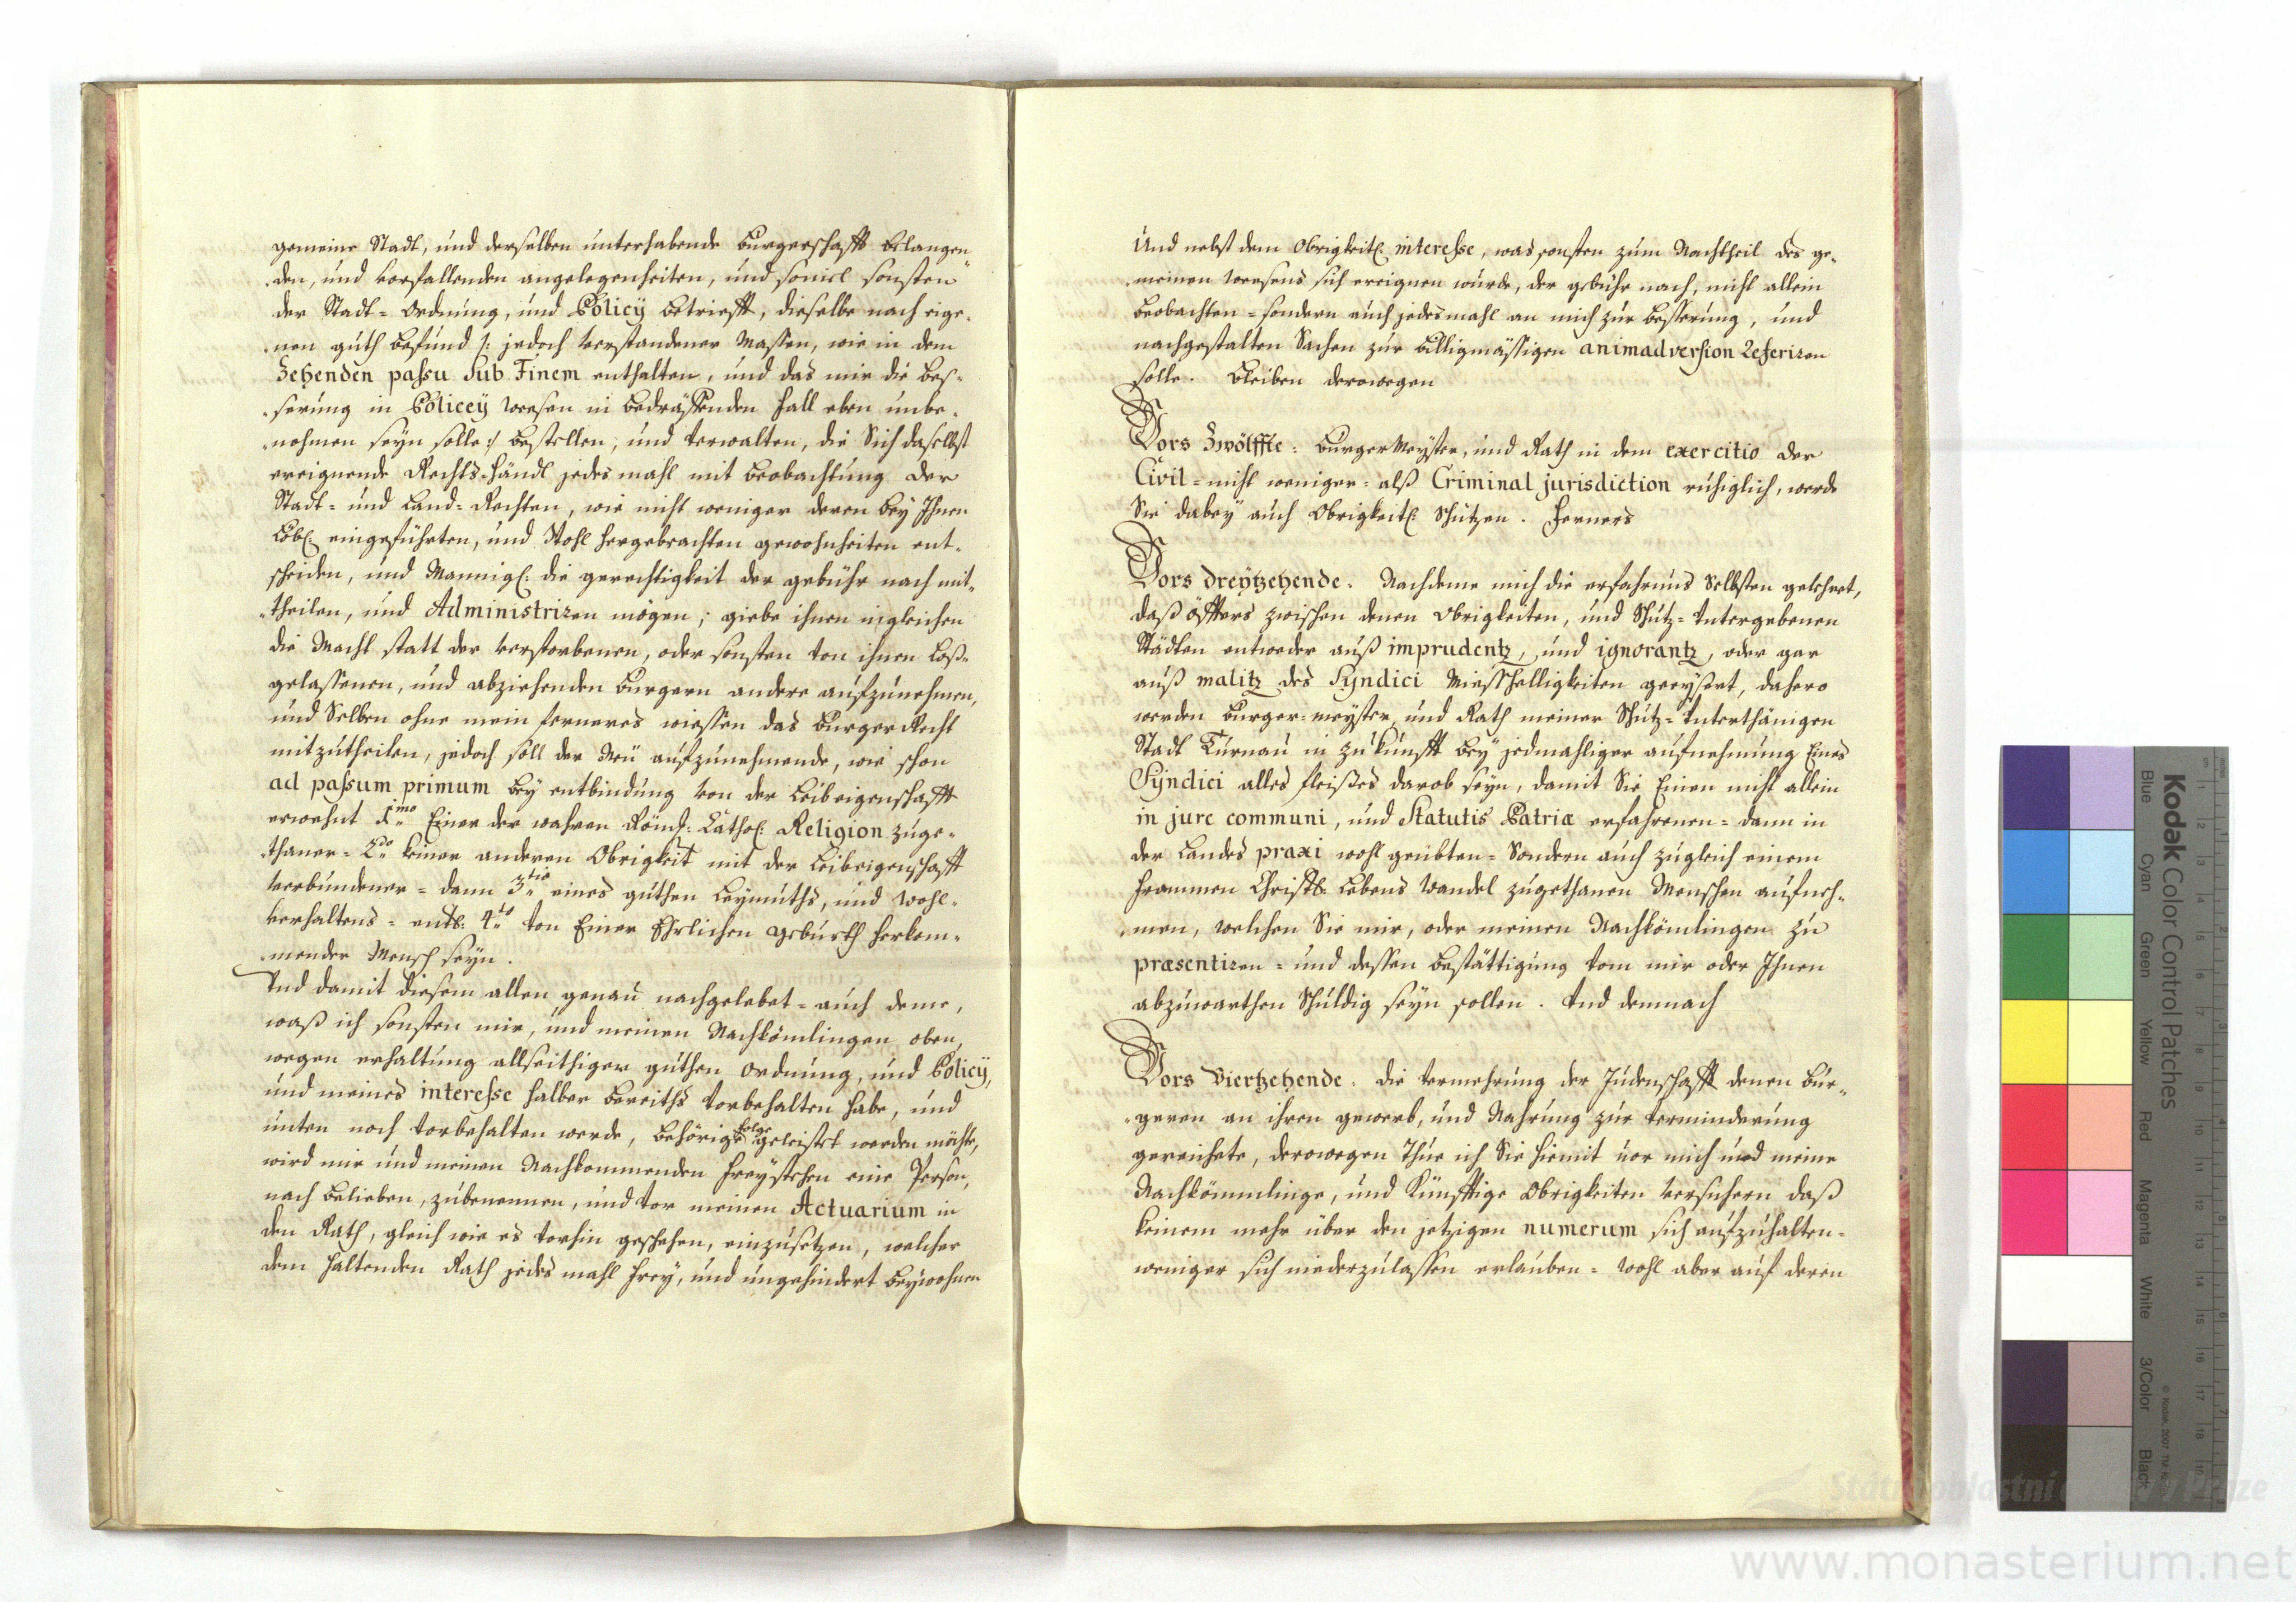 gemeine Stadt, und derselben unterhabende Burgerschafft belangen-
den, und vorfallenden angelegenheiten, und soviel sonsten
der Stadt-Ordnung, und Policÿ betriefft, dieselbe nach eige-
nen guth befund /: jedoch verstandener Massen, wie in dem
Zehenden passu sub Finem enthalten, und das mir die bes-
serung in Policeÿ weesen in bedräffenden fall eben unbe-
nohmen seyn solle :/ bestellen, und verwalten, die Sich daselbst
ereignende Rechts-händl jedes mahl mit beobachtung der
Stadt- und Land-Rechten, wie nicht weniger deren beÿ Ihnen
Löbl: eingeführten, und Wohl hergebrachten gewohnheiten ent-
scheiden, und Mannigl: die gerechtigkeit der gebühr nach mit-
theilen, und Administriren mögen; giebe ihnen ingleichen
die Macht statt der verstorbenen, oder sonsten von ihnen Loß-
gelassenen, und abziehenden burgern andere aufzunehmen,
und Selben ohne mein ferneres wiessen das Burger Recht
mitzutheilen, jedoch soll der Neü aufzunehmende, wie schon
ad passum primum beÿ entbindung von der Leibeigenschafft
erwehnt 1mo Einer der wahren Römis: Cathol: Religion zuge-
thaner- 2do keiner anderen Obrigkeit mit der Leibeigenschafft
verbundener- dann 3tio eines guthen Leÿmuths, und Wohl-
verhaltens- endl: 4to von Einer Ehrlichen geburth herkom-
mender Mensch seyn.
Vnd damit diesem allen genau nachgelebet- auch deme,
waß ich sonsten mir, und meinen Nachkömlingen oben,
wegen erhaltung allseithiger guthen ordnung, und Policÿ,
und meines interesse halber bereiths vorbehalten habe, und
unten noch vorbehalten werde, behörige folge geleistet werden möchte,
wird mir und meinen Nachkommenden freÿstehen eine Person,
nach belieben, zubenennen, und vor meinen Actuarium in
den Rath, gleich wie es vorhin geschehen, einzusetzen, welcher
dem haltenden Rath jedes mahl freÿ, und ungehindert beÿwohnen
Und nebst dem Obrigkeitl: interesse, was sonsten zum Nachtheil des ge-
meinen weesens sich ereignen würde, der gebühr nach, nicht allein
beobachten- sondern auch jedesmahl an mich zur besserung, und
nachgestalten Sachen zur billigmässigen animadversion Referiren
solle. Bleiben derowegen
Vors Zwölffte: Burger Meÿster, und Rath in dem exercitio der
Civil- nicht weniger- alß Criminal jurisdiction ruhiglich, werde
Sie dabeÿ auch Obrigkeitl: schützen. Ferners
Vors dreÿtzehende. Nachdeme mich die erfahrnus Selbsten gelehret,
daß öffters zwischen denen Obrigkeiten, und Schutz-Vntergebenen
Städten entweder auß imprudentz, und ignorantz, oder gar
auß malitz des Syndici Miesshelligkeiten geeÿsert, dahero
werden Burger-meÿster, und Rath meiner Schutz-Vnterthänigen
Stadt Turnau in zukunfft beÿ jedmahliger aufnehmung Eines
Syndici alles fleißes darob seyn, damit Sie Einen nicht allein
in jure communi, und Statutis Patriæ erfahrenen- dann in
der Landes praxi wohl geübten- Sondern auch zugleich einem
frommen Christl: Lebens Wandel zugethanen Menschen aufneh-
men, welchen Sie mir, oder meinen Nachkömlingen zu
præsentiren- und dessen bestättigung von mir oder Ihnen
abzuwarthen Schuldig seyn sollen. Vnd demnach
Vors Viertzehende. die vermehrung der Judenschafft denen bur-
geren an ihren gewerb, und Nahrung zur verminderung
gereichete, derowegen Thue ich Sie hiemit vor mich und meine
Nachkömmlinge, und Künfftige Obrigkeiten versichern daß
keinem mehr über den jetzigen numerum sich aufzuhalten-
weniger sich niederzulassen erlauben- wohl aber auf deren
Kodak Color Control Patches
Blue Cyan Green Yellow Red Magenta White 3/Color Black
www.monasterium.net